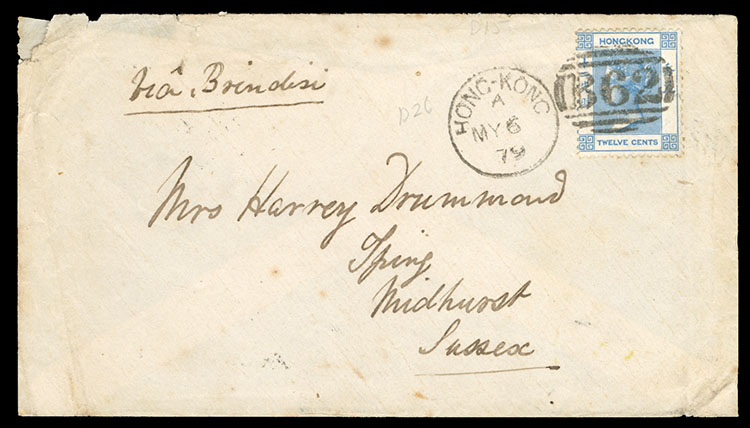 D15
HONGKONG
B62
TWELVE CENTS
Viâ Brindisi
D26
HONG-KONG
A
MY 6
79
Mrs Harvey Drummond
Iping
Midhurst
Sussex